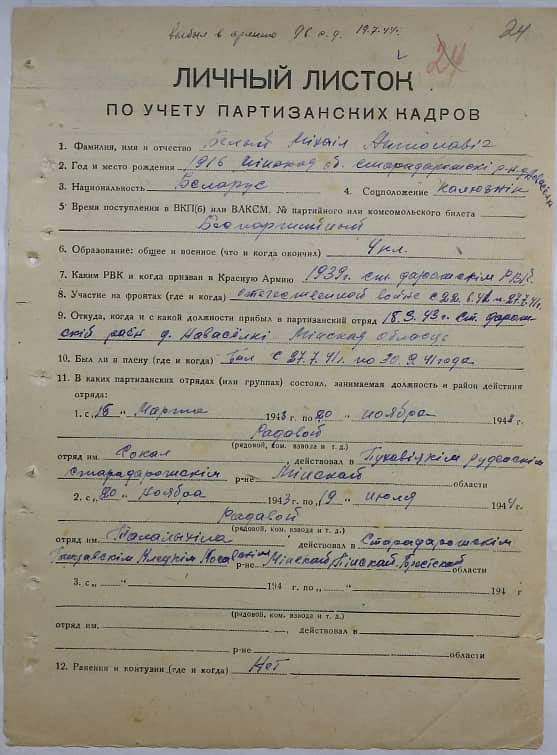 выбыл в армию 96 с.д. 19.7.44г.
24
24
ЛИЧНЫЙ ЛИСТОК
ПО УЧЕТУ ПАРТИЗАНСКИХ КАДРОВ
1. Фамилия, имя и отчество Белый Міхаіл Антонавіч
2. Год и место рождения 1916 Мінская об. Старадарожскі р-н д. Новасёлкі
3. Национальность Беларус 4. Соцположение Калхознік
5 Время поступления в ВКП(б) или ВЛКСМ, № партийного или комсомольского билета
Беспартийный
6. Образование: общее и военное (что и когда окончил) 4 кл.
7. Каким РВК и когда призван в Красную Армию 1939г. Ст. дарожскім РВК
8. Участие на фронтах (где и когда) отечественной войне с 22.6.41 п 27.7.41г.
9. Откуда, когда и с какой должности прибыл в партизанский отряд 18.3.43г. Ст. дарож-
скій раён д. Навасёлкі Мінская область
10. Был ли в плену (где и когда) Был с 27.7.41г. по 20.9.41 года
11. В каких партизанских отрядах (или группах) состоял, занимаемая должность и район действия
отряда:
1. с „18 “ Марта 1943 г. по „20 “ ноября 1943 г.
Радавой
(рядовой, ком. взвода и т. д.)
отряд им. Сокал действовал в Пухавіцкім Руденскім
Старадарожскім р-не Мінскай области
2. с „20 “ ноября 1943 г. по „19 “ июля 1944 г.
Радавой
(рядовой, ком. взвода и т. д.)
отряд им. действовал в Старадарожскім
Клецкім р-не Мінскай, Пінскай, Брестскай области
3. с „ “ 194 г. по „ “ 194 г
(рядовой, ком. взвода и т. д.)
отряд им. , действовал в
р-не области
12. Ранения и контузии (где и когда) Нет